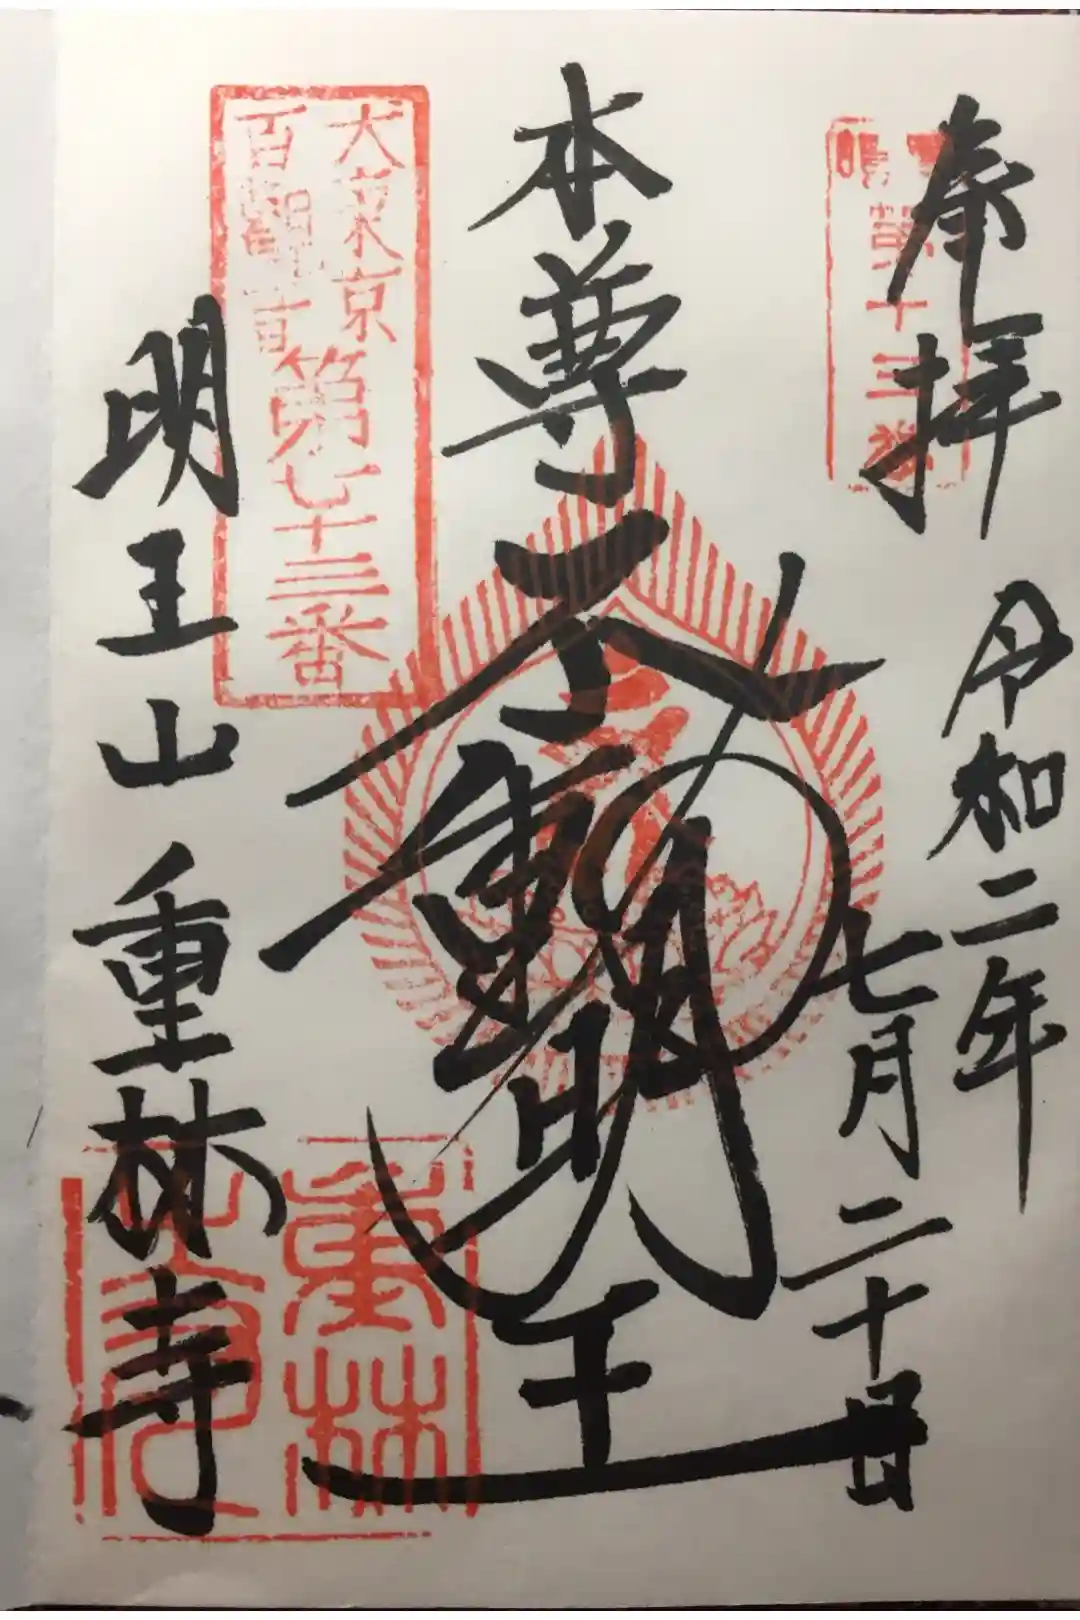 奉拝
令和二年
七月二十日
第十三番
本尊不動明王
大東京
百観音
第七十三番
明王山重林寺
重林